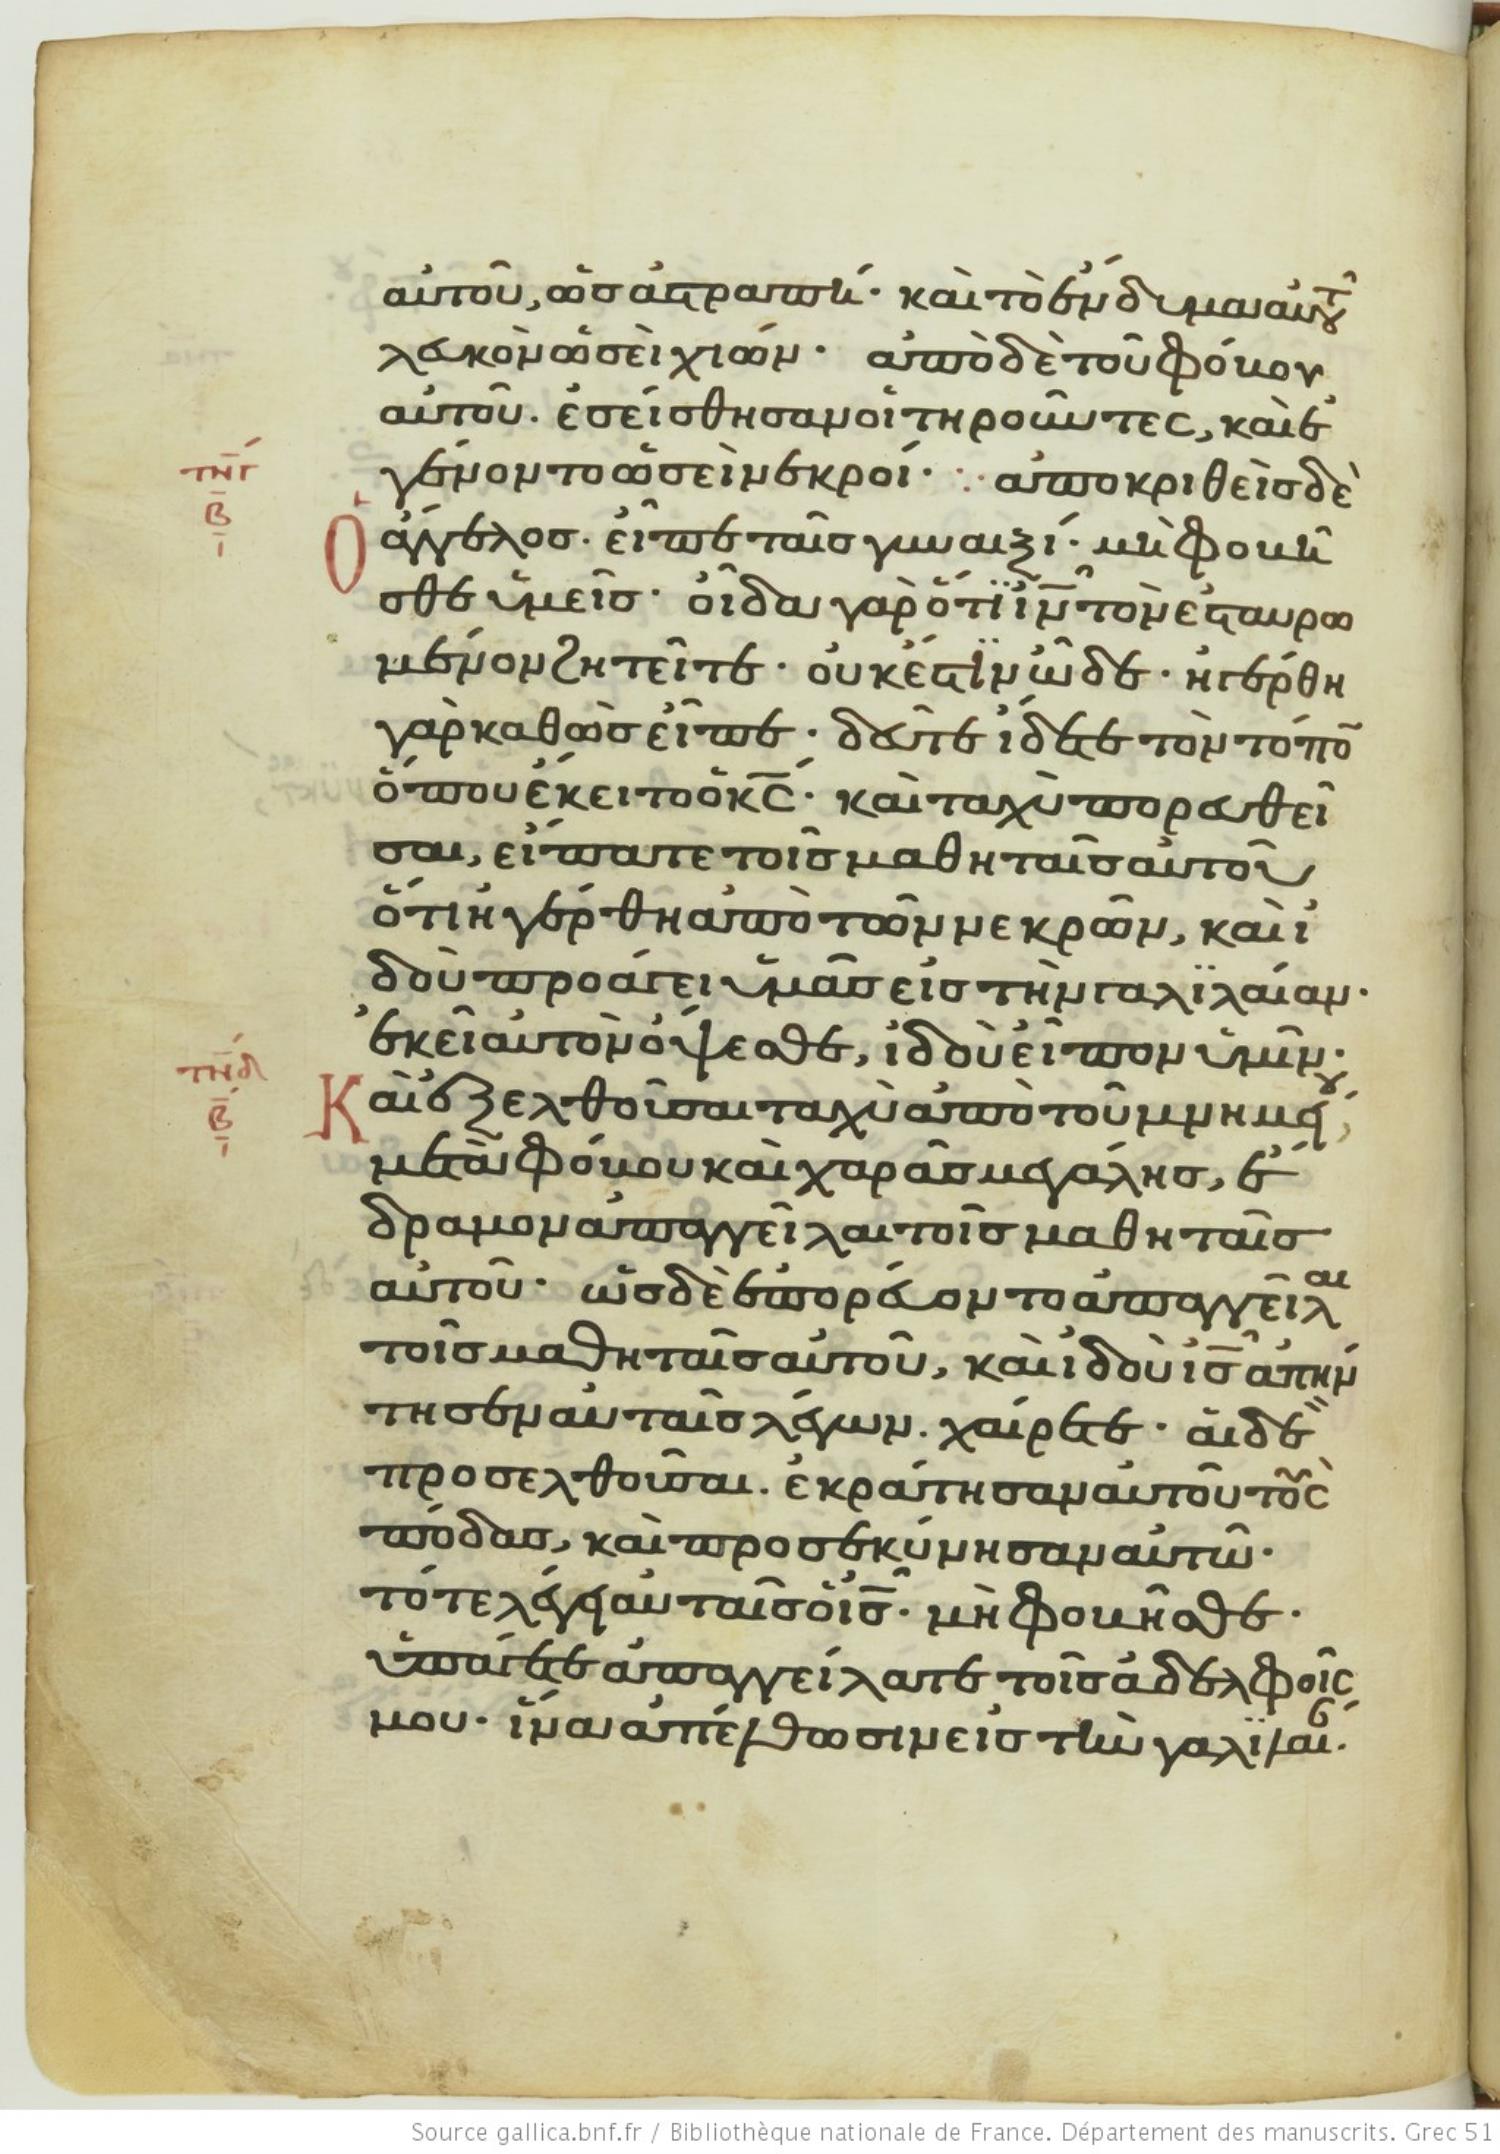 αὐτοῦ, ὡς ἀστραπὴ· καὶ τὸ ἔνδυμα αὐτοῦ
λευκὸν ὡσεὶ χιών· ἀπὸ δὲ τοῦ φόβου
αὐτοῦ. ἐσείσθησαν οἱ τηροῦντες, καὶ ἐ
γένοντο ὡσεὶ νεκροί· ἀποκριθεὶς δὲ
τνγ
β
ὁ ἄγγελος. εἶπε ταῖς γυναιξί· μὴ φοβεῖ
σθε ὑμεῖς· οἶδα γὰρ ὅτι ἰν̄ τὸν ἐσταυρω
μένον ζητεῖτε· οὐκ ἔστιν ὧδε· ἠγέρθη
γὰρ καθὼς εἶπε· δεῦτε ἴδετε τὸν τόπο̄
ὅπου ἔκειτο ὁ κ̄ς· καὶ ταχὺ πορευθεῖ
σαι, εἴπατε τοῖς μαθηταῖς αὐτοῦ
ὅτι ἠγέρθη ἀπὸ τῶν νεκρῶν, καὶ ἰ
δοὺ προάγει ὑμᾶς εἰς τὴν γαλϊλαίαν·
ἐκεῖ αὐτὸν ὄψεσθε, ἰδοὺ εἶπον ὑμῖν·
τνδ
β
Καὶ ἐξελθοῦσαι ταχὺ ἀπὸ τοῦ μνημείου,
μετὰ φόβου καὶ χαρᾶς μεγάλης, ἔ
δραμον ἀπαγγεῖλαι τοῖς μαθηταῖς
αὐτοῦ· ὡς δὲ ἐπορεύοντο ἀπαγγεῖλαι
τοῖς μαθηταῖς αὐτοῦ, καὶ ἰδοὺ ῑς ἀπήν
τησεν αὐταῖς λέγων. χαίρετε· αἱ δὲ
προσελθοῦσαι. ἐκράτησαν αὐτοῦ τοὺς
πόδας, καὶ προσεκύνησαν αὐτῷ·
τότε λέγει αὐταῖς ὁ ῑς· μὴ φοβῆσθε·
ὑπάγετε ἀπαγγείλατε τοῖς ἀδελφοῖς
μου· ἵνα ἀπέλθωσιν εἰς τὴν γαλϊλαί.
Source gallica.bnf.fr / Bibliothèque nationale de France. Département des manuscrits. Grec 51